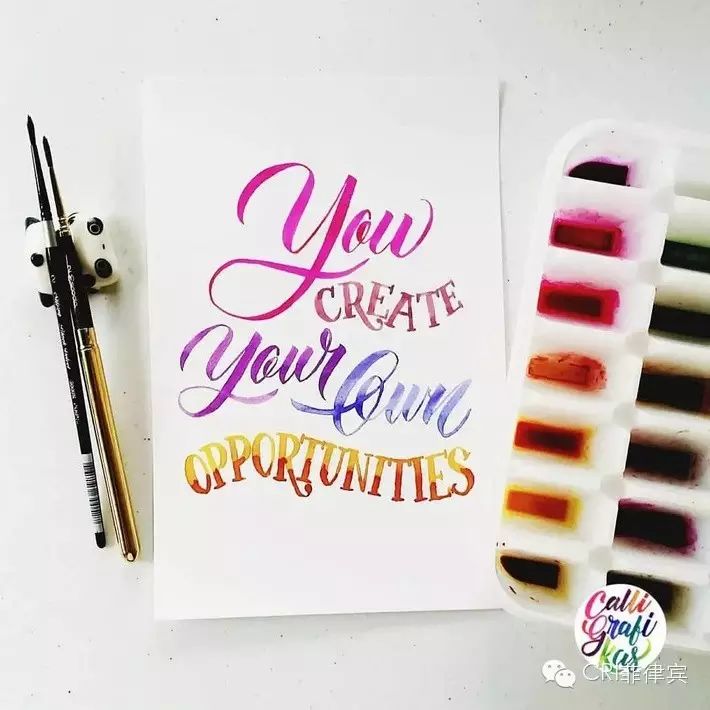 You
CREATE
Your Own
OPPORTUNITIES
Calli
Grafi
kas
CRI菲律宾